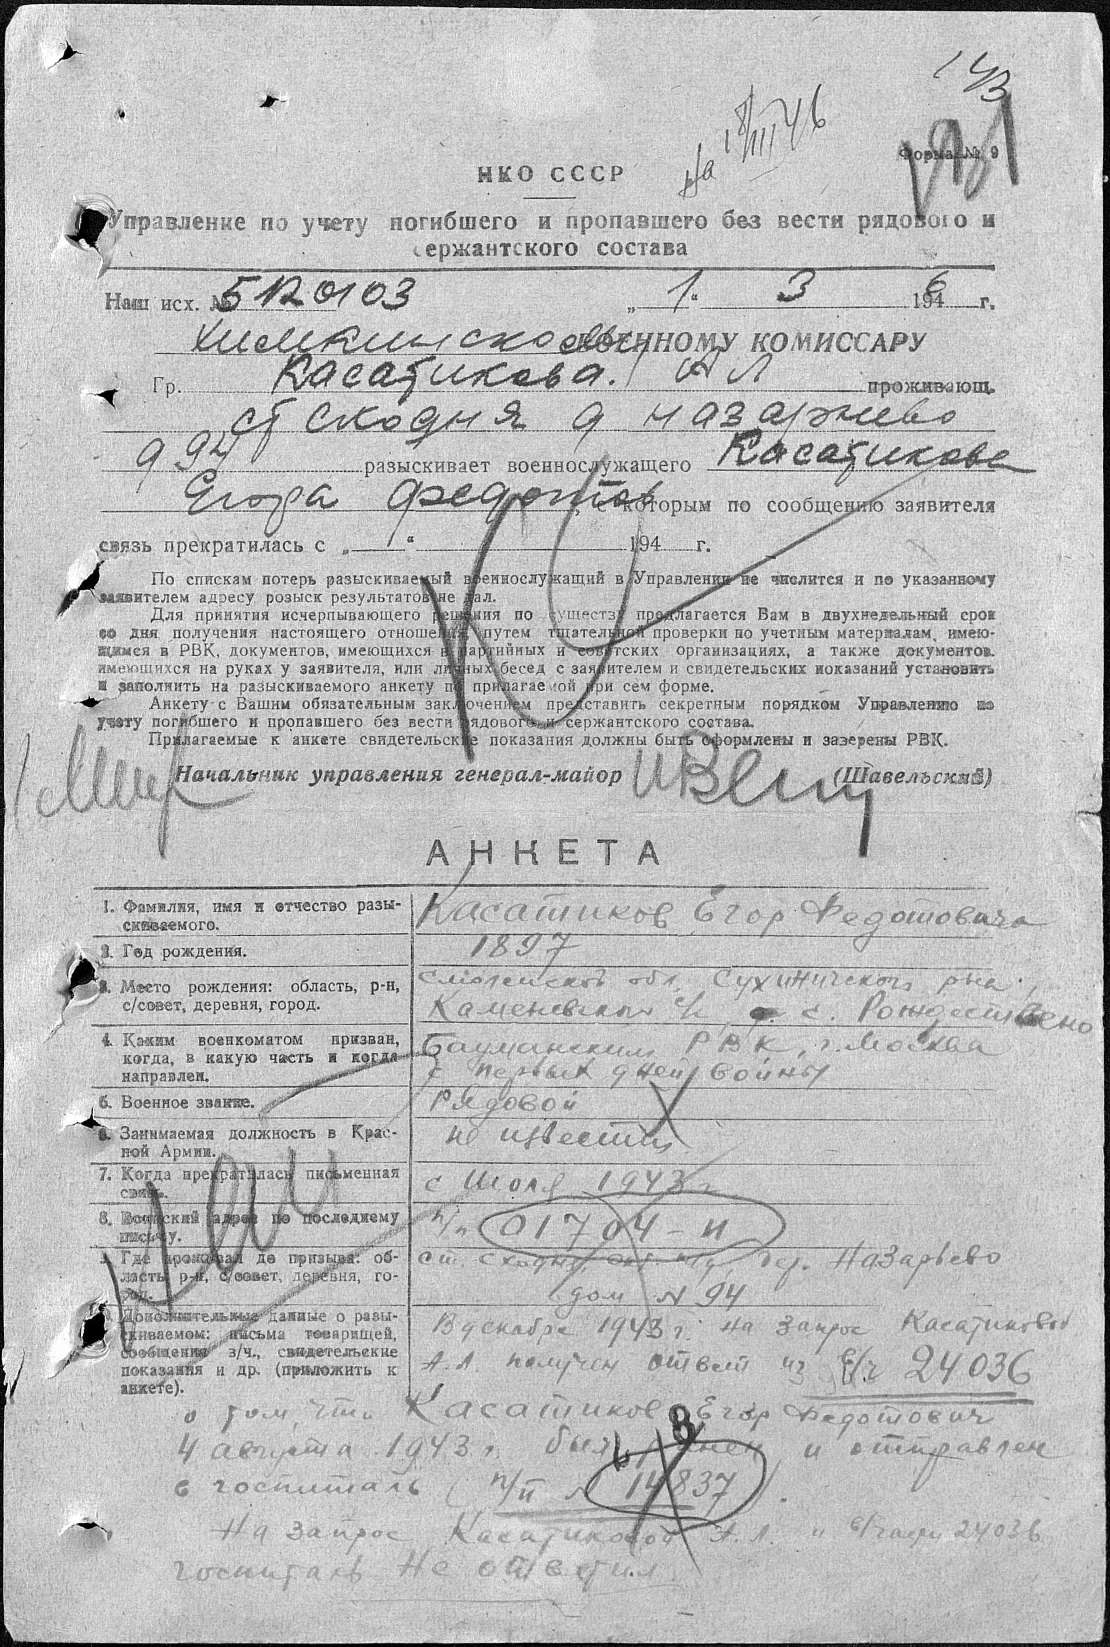 143
Форма № 9
На 18/III 46
НКО СССР
Управление по учету погибшего и пропавшего без вести рядового и
сержантского состава
Наш исх. № 5120103 „1“ 3 1946 г.
Химкинскому ВОЕННОМУ КОМИССАРУ
Гр. Касатикова А Л проживающ.
ст Сходня д Назарьево
д 94 разыскивает военнослужащего Касатикова
Егора Федотов , с которым по сообщению заявителя
связь прекратилась с „ “ 194 г.
По спискам потерь разыскиваемый военнослужащий в Управлении не числится и по указанному
заявителем адресу розыск результатов не дал.
Для принятия исчерпывающего решения по существу предлагается Вам в двухнедельный срок
со дня получения настоящего отношения, путем тщательной проверки по учетным материалам, имею-
щимся в РВК, документов, имеющихся в партийных и советских организациях, а также документов.
имеющихся на руках у заявителя, или личных бесед с заявителем и свидетельских показаний установить
и заполнить на разыскиваемого анкету по прилагаемой при сем форме.
Анкету с Вашим обязательным заключением представить секретным порядком Управлению по
учету погибшего и пропавшего без вести рядового и сержантского состава.
Прилагаемые к анкете свидетельские показания должны быть оформлены и заверены РВК.
Начальник управления генерал-майор (Шавельский)
АНКЕТА
1. Фамилия, имя и отчество разы-
скиваемого.
Касатиков Егор Федотович
2. Год рождения.
1897
3. Место рождения: область, р-н,
с/совет, деревня, город.
Смоленской обл, Сухиничского р-на
Каменский с/с, с. Рождествено
4. Каким военкоматом призван,
когда, в какую часть и когда
направлен.
Бауманским РВК, г. Москва
с первых дней войны
5. Военное звание.
Рядовой
6. Занимаемая должность в Крас-
ной Армии.
не известно
7. Когда прекратилась письменная
связь.
с Июля 1943 г
8. Воинский адрес по последнему
письму.
п/п 01704-и
9. Где проживал до призыва: об-
ласть, р-н, с/совет, деревня, го-
род.
ст Сходня дер. Назарьево
дом № 94
10. Дополнительные данные о разы-
скиваемом: письма товарищей,
сообщения в/ч., свидетельские
показания и др. (приложить к
анкете).
В декабре 1943 г. на запрос Касатиковой
А.Л. получен ответ из в/ч 24036
о том, что Касатиков Егор Федотович
4 августа 1943 г. был ранен и отправлен
в госпиталь (п/п № 14837)
На запрос Касатиковой А.Л. и в/части 24036
госпиталь не ответил.